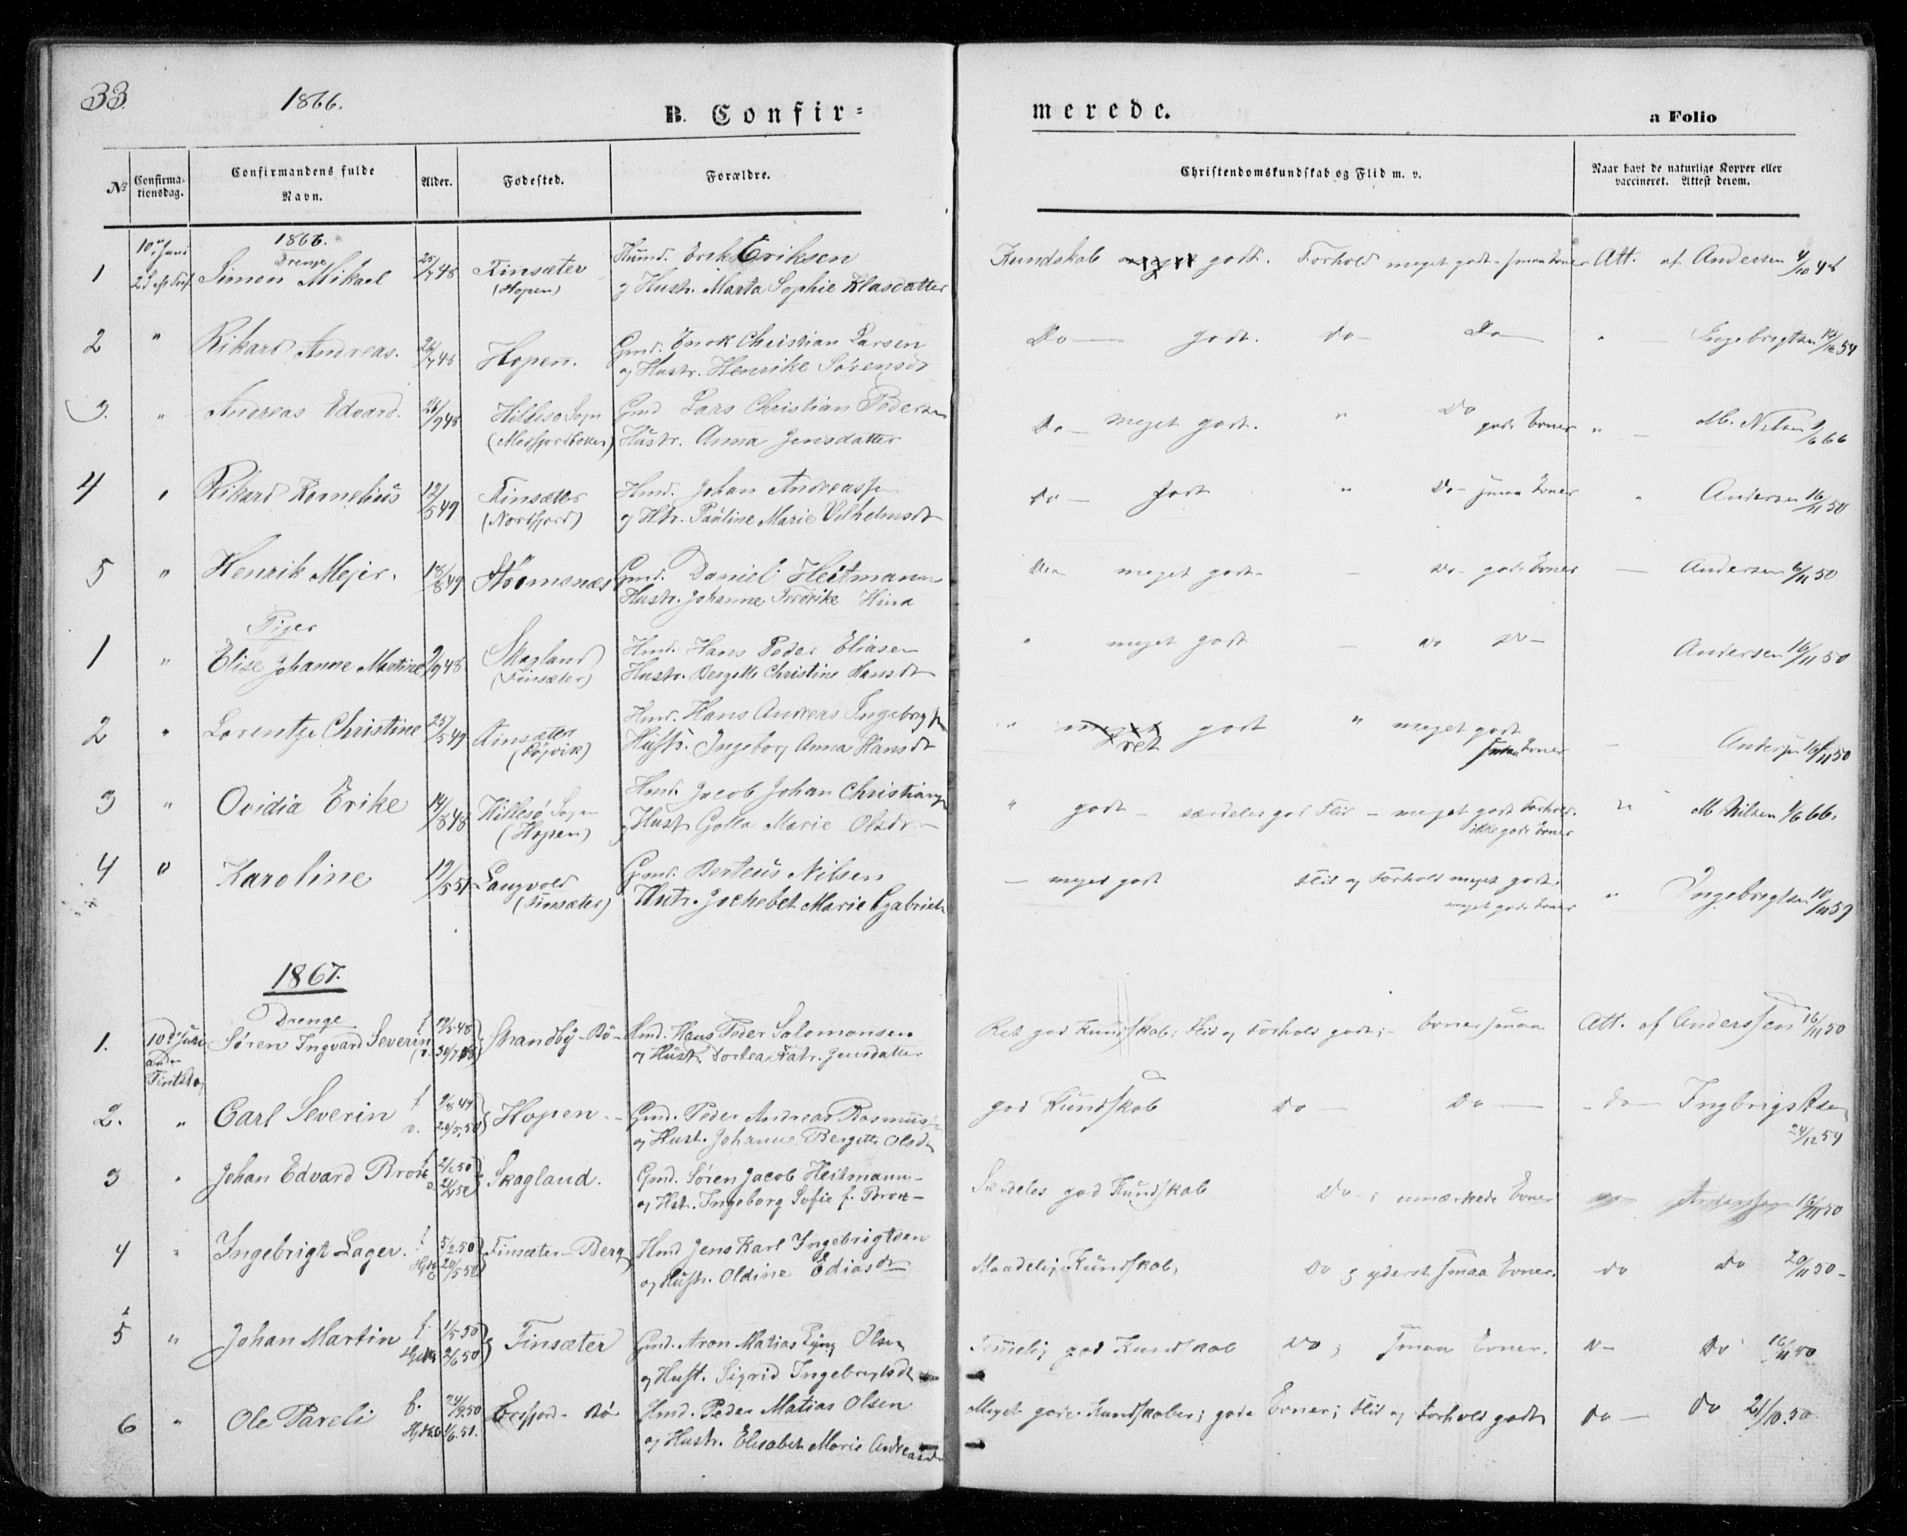 33. 1866.
B. Confir= merede. a Folio
№ Confirma-tionsdag. Confirmandens fulde Navn. Alder. Fødested. Forældre. Christendomskundskab og Flid m. v. Naar havt de naturlige Kopper eller vaccineret. Attest derom.
1866.
Drenge
1 10de Juni Simon Mikael 48 Finsæter (Hopen) Huusm. Erik Eriksen
og Hustr. Marta Sophie Klasdatter
Kundskab godt. Forhold meget godt. smaa Evner Att. af Andersen 4/10 48
2 " Rikard Andreas. 48 Hopen. Gmd. Enok Christian Larsen
og Hustr. Henrike Sørensdt
Do — godt. do — Do — Ingebrigtsen 54
3. " Andreas Edvard. 48 Hillesø Sogn Gmd Lars Christian Pedersen
Hustr. Anna Jensdatter
Do — meget godt. " Do gode Evner " — M. Nilsen 66
4 " Rikard Kornelius 12/5 49 Finsætter (Nordfjord) Hmd. Johan Andreassen
og Htr. Pauline Marie Vilhelmsdt
Do — godt " Do — smaa Evner " Andersen 16/11 50
5 " Henrik Mejer. 18/8 49 Strømsnæs Gmd. Daniel Heitmann
Hustr. Johanne Fredrike Hind
Do meget godt — Do — gode Evner — Andersen 50
Piger
1 " Elise Johanne Martine 48 Skagland (Finsæter) Hmd. Hans Peder Eliasen
Hustr. Bergette Christine Hansdt
" meget godt — do do — Andersen 16/11 50
2 " Lorentze Christine 25/5 49 Finsæter (Røjvik) Hmd. Hans Andreas Ingebrigtsen
Hustr. Ingeborg Anna Hansdt
" meget ret godt " meget godt smaa Evner — Andersen 16/11 50
3 " Ovidia Erike 14/8 48 Hillesø Sogn (Hopen) Hmd. Jacob Johan Christiansen
og Hustr. Golla Marie Olsdr. —
" godt — særdeles god Flid — meget godt Forhold. ikke gode Evner " M. Nilsen 66.
4 " Karoline 19/5 51 Langvold (Finsæter) Gmd. Berteus Nilsen
Hutr. Jochebet Marie Gabriels
— meget godt Flid og Forhold meget godt. meget gode Evner " Ingebrigtsen 57
1867.
Drenge
1. 10de Juni anden Pintsdag Søren Ingvard Severin f 48 Strandby - Bø - Hmd. Hans Peder Salomonsen
og Hustr. Dorthea Jensdatter
Ret god Kundskab; Flid og Forhold godt; — Evner smaa Att. af Anderssen 16/11 50
2. " Carl Severin f v. Hopen — Gmd. Peder Andreas Rasmus:
og Hustr. Johanne Bergitte Olsdr
god Kundskab Do Do — do — Ingbrigtsen
24/12 54
3 " Johan Edvard Brox f 50 Skagland. Gmd. Søren Jacob Heitmann —
og Hstr. Ingeborg Sofie f. Brox —
Særdeles god Kundskab Do —; umærkede Evner do Anderssen 16/11 50
4 " Ingebrigt Lager. f 5/2 50 Finsæter - Berg Hmd Jens Karl Ingebrigtsen
og Hustr. Oldine Ediasdt
Maadelig Kundskab, Do; yderst smaa Evner. do do 20/11 50 —
5 " Johan Martin f 1/5 50 Finsæter Gmd. Aron Matias Olsen
og Hust. Sigrid Ingebrigtsdt
Temmelig god Kundskab Do; smaa Evner. Do Do 16/11 50
6 " Ole Pareli f. 24/9 50 - Bø Hmd. Peder Matias Olsen
og Hustr. Elisabet Marie Andreasdr
Meget gode Kundskaber; gode Evner; Flid og Forhold godt do — do 21/10. 50.